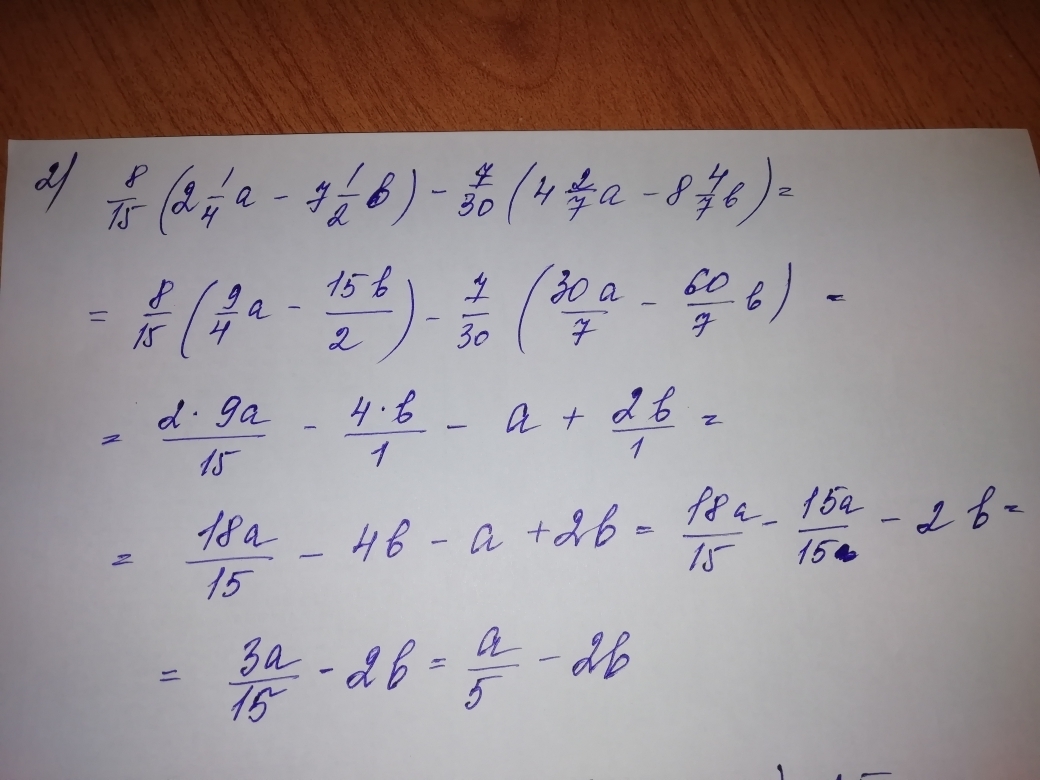 2) 8/15 (2 1/4 a - 7 1/2 в) - 7/30 (4 2/7 a - 8 4/7 в) =
= 8/15 (9/4 a - 15в/2) - 7/30 (30a/7 - 60/7 в) =
= 2·9a/15 - 4·в/1 - a + 2в/1 =
= 18a/15 - 4в - a + 2в = 18a/15 - 15a/15 - 2в =
= 3a/15 - 2в = a/5 - 2в